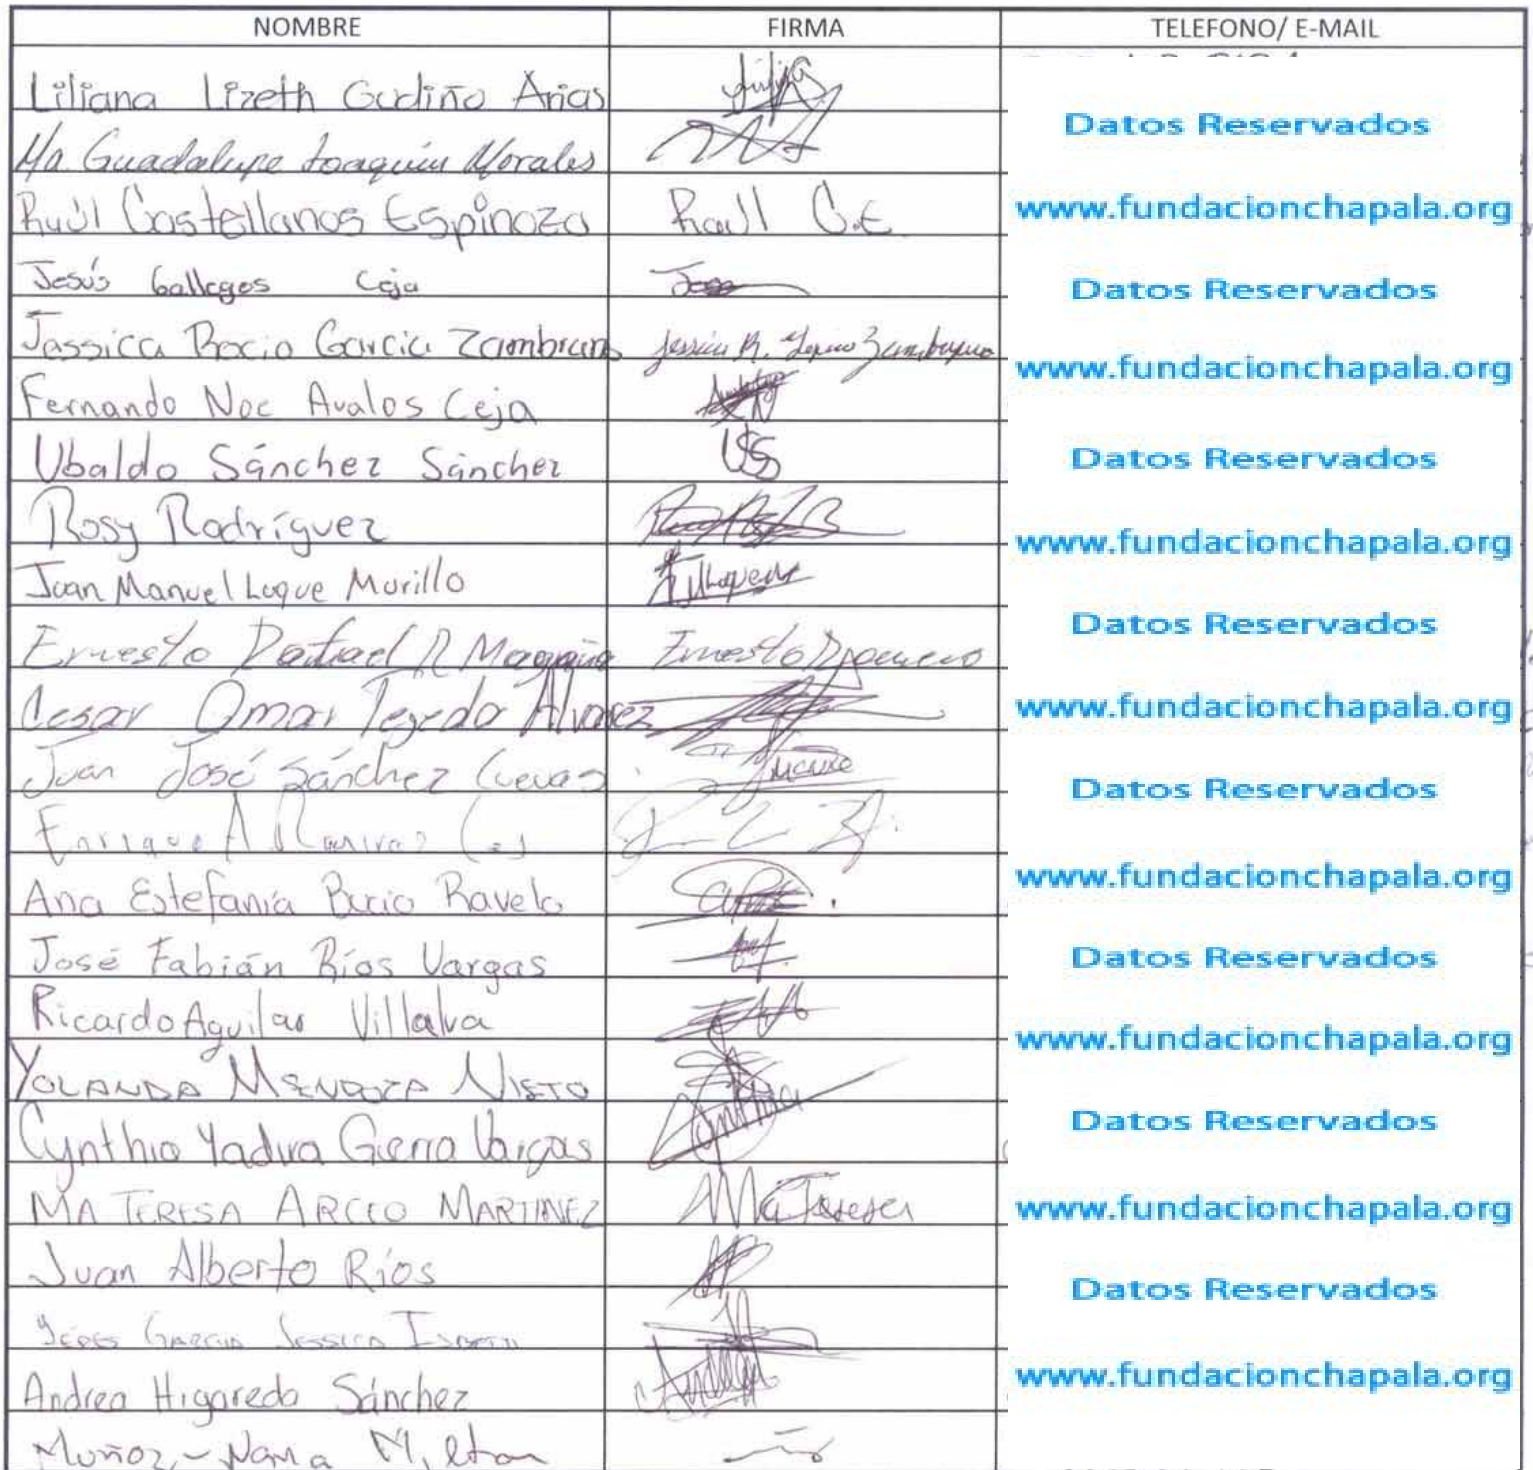 NOMBRE FIRMA TELEFONO/ E-MAIL
Liliana Lizeth Gudiño Arias
Datos Reservados
Ma. Guadalupe Joaquín Morales
Raúl Castellanos Espinoza Raúl C.E. www.fundacionchapala.org
Jesús Gallegos Ceja Datos Reservados
Jessica Rocio Garcia Zambrano Jessica R. Zambrano www.fundacionchapala.org
Fernando Noe Avalos Ceja
Ubaldo Sánchez Sánchez USS Datos Reservados
Rosy Rodríguez www.fundacionchapala.org
Juan Manuel Luque Murillo
Ernesto Rafael R Magaña Ernesto Datos Reservados
Cesar Omar Tejeda Alvarez www.fundacionchapala.org
Juan José Sánchez Cuevas Datos Reservados
Enrique A Ramirez
Ana Estefanía Bucio Ravelo www.fundacionchapala.org
José Fabián Ríos Vargas Datos Reservados
Ricardo Aguilar Villalva www.fundacionchapala.org
YOLANDA MENDOZA NIETO
Cynthia Yadira Guerra Vargas Cynthia Datos Reservados
MA TERESA ARCEO MARTINEZ Ma Teresa www.fundacionchapala.org
Juan Alberto Ríos Datos Reservados
GARCIA JESSICA
Andrea Higareda Sánchez www.fundacionchapala.org
Muñoz Nava Milton